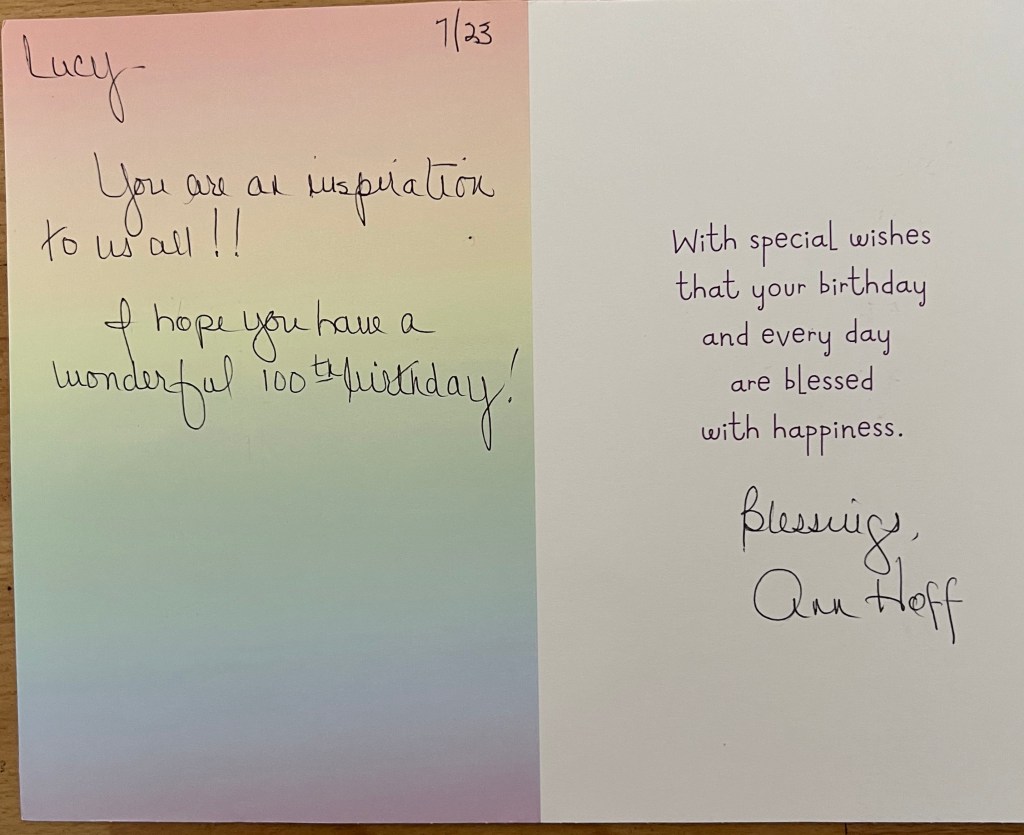 7/23
Lucy-
You are an inspiration
to us all!!
I hope you have a
wonderful 100th birthday!
With special wishes
that your birthday
and every day
are blessed
with happiness.
Blessings,
Ann Hoff